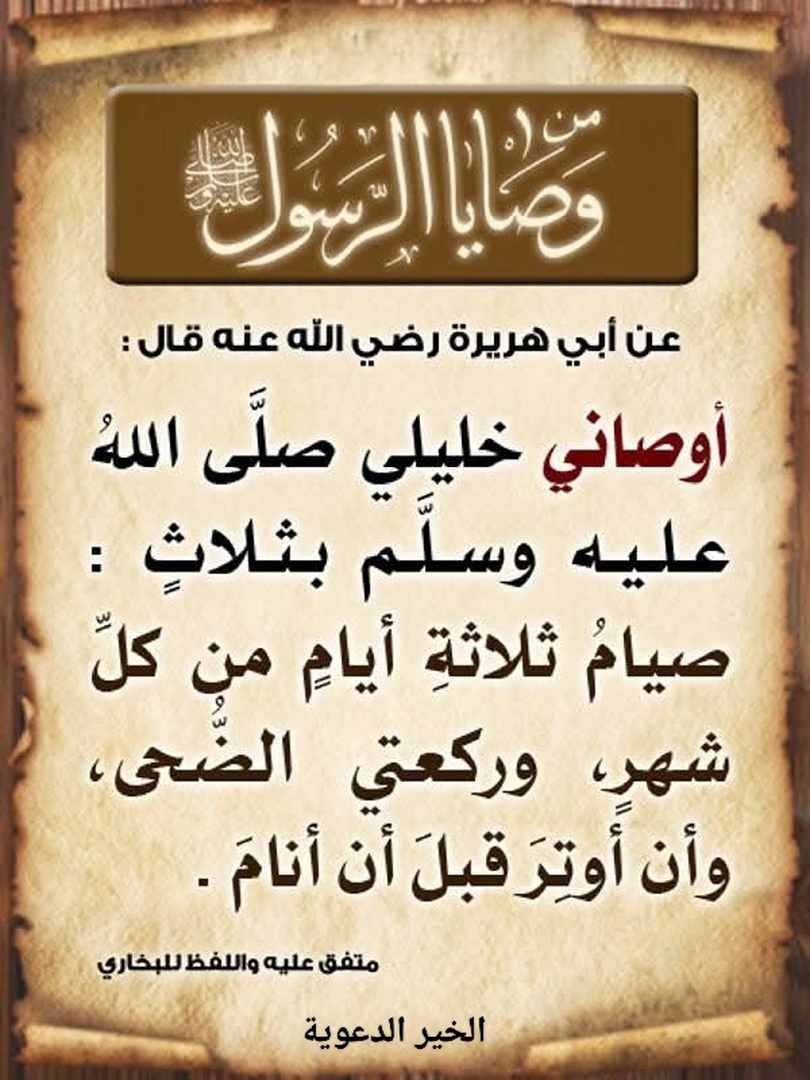 من
وَصَايا الرَّسُول صلى الله عليه وسلم
عن أبي هريرة رضي الله عنه قال :
أوصاني خليلي صلَّى اللهُ
عليه وسلَّم بثلاثٍ :
صيامُ ثلاثةِ أيامٍ من كلِّ
شهرٍ، وركعتي الضُّحى،
وأن أوتِرَ قبلَ أن أنامَ .
متفق عليه واللفظ للبخاري
الخير الدعوية